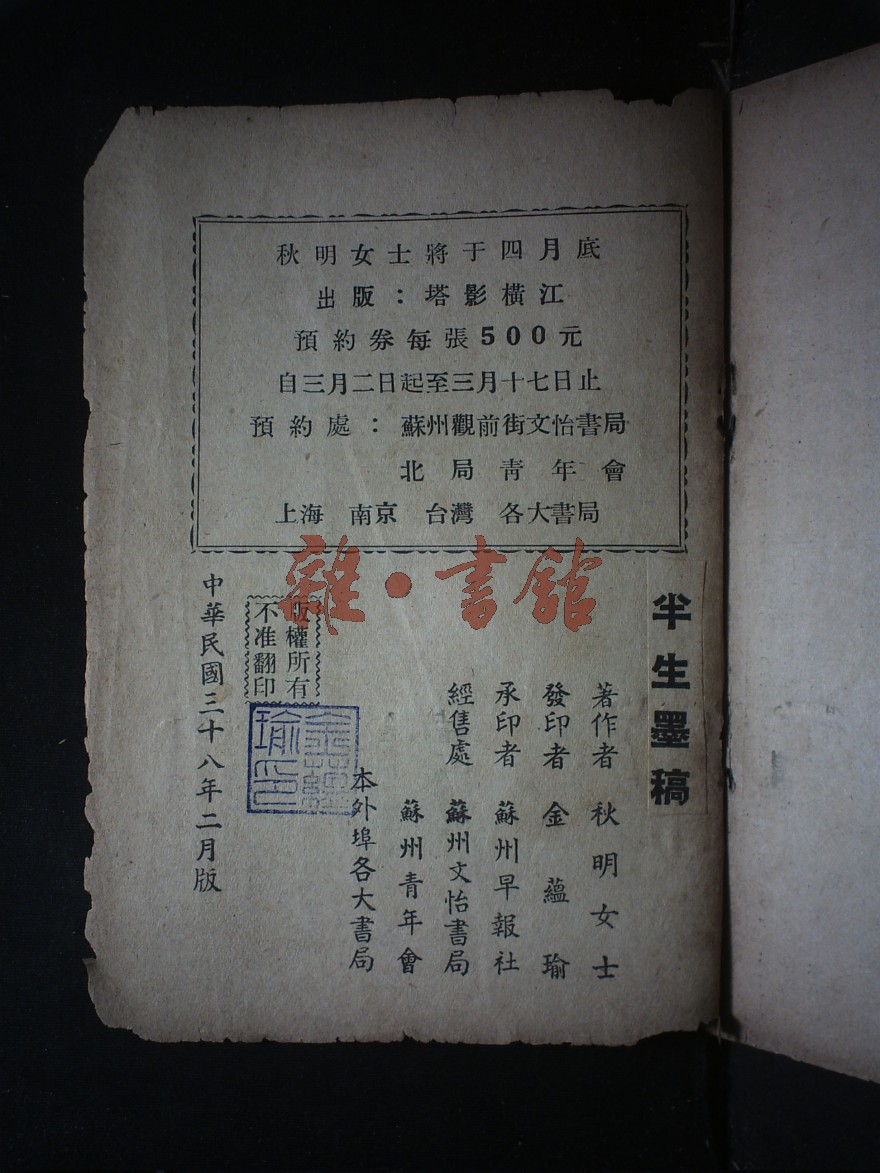 秋明女士將于四月底
出版：塔影橫江
預約券每張500元
自三月二日起至三月十七日止
預約處：蘇州觀前街文怡書局
北局青年會
上海 南京 台灣 各大書局
雜·書館
半生墨稿
著作者 秋明女士
發印者 金蘊瑜
承印者 蘇州早報社
經售處 蘇州文怡書局
蘇州青年會
本外埠各大書局
版權所有
不准翻印
金蘊
瑜印
中華民國三十八年二月版